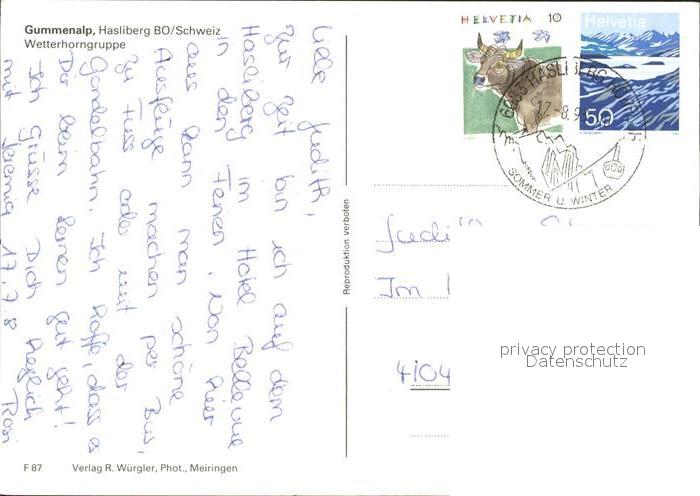 Gummenalp, Hasliberg BO/Schweiz
Wetterhorngruppe
Liebe Judith,
Zur Zeit bin ich auf dem
Hasliberg im Hotel Bellevue
in den Ferien. Von hier
aus kann man schöne
Ausflüge machen per Bus,
zu Fuss oder mit der
Gondelbahn. Ich hoffe, dass es
Dir beim lernen gut geht!
Ich grüsse Dich herzlich
mit Jeremia Rosi
Reproduktion verboten
HELVETIA 10
Helvetia
50
HASLIBERG
SOMMER U. WINTER
Judi
Im
4104
privacy protection
Datenschutz
F 87 Verlag R. Würgler, Phot., Meiringen